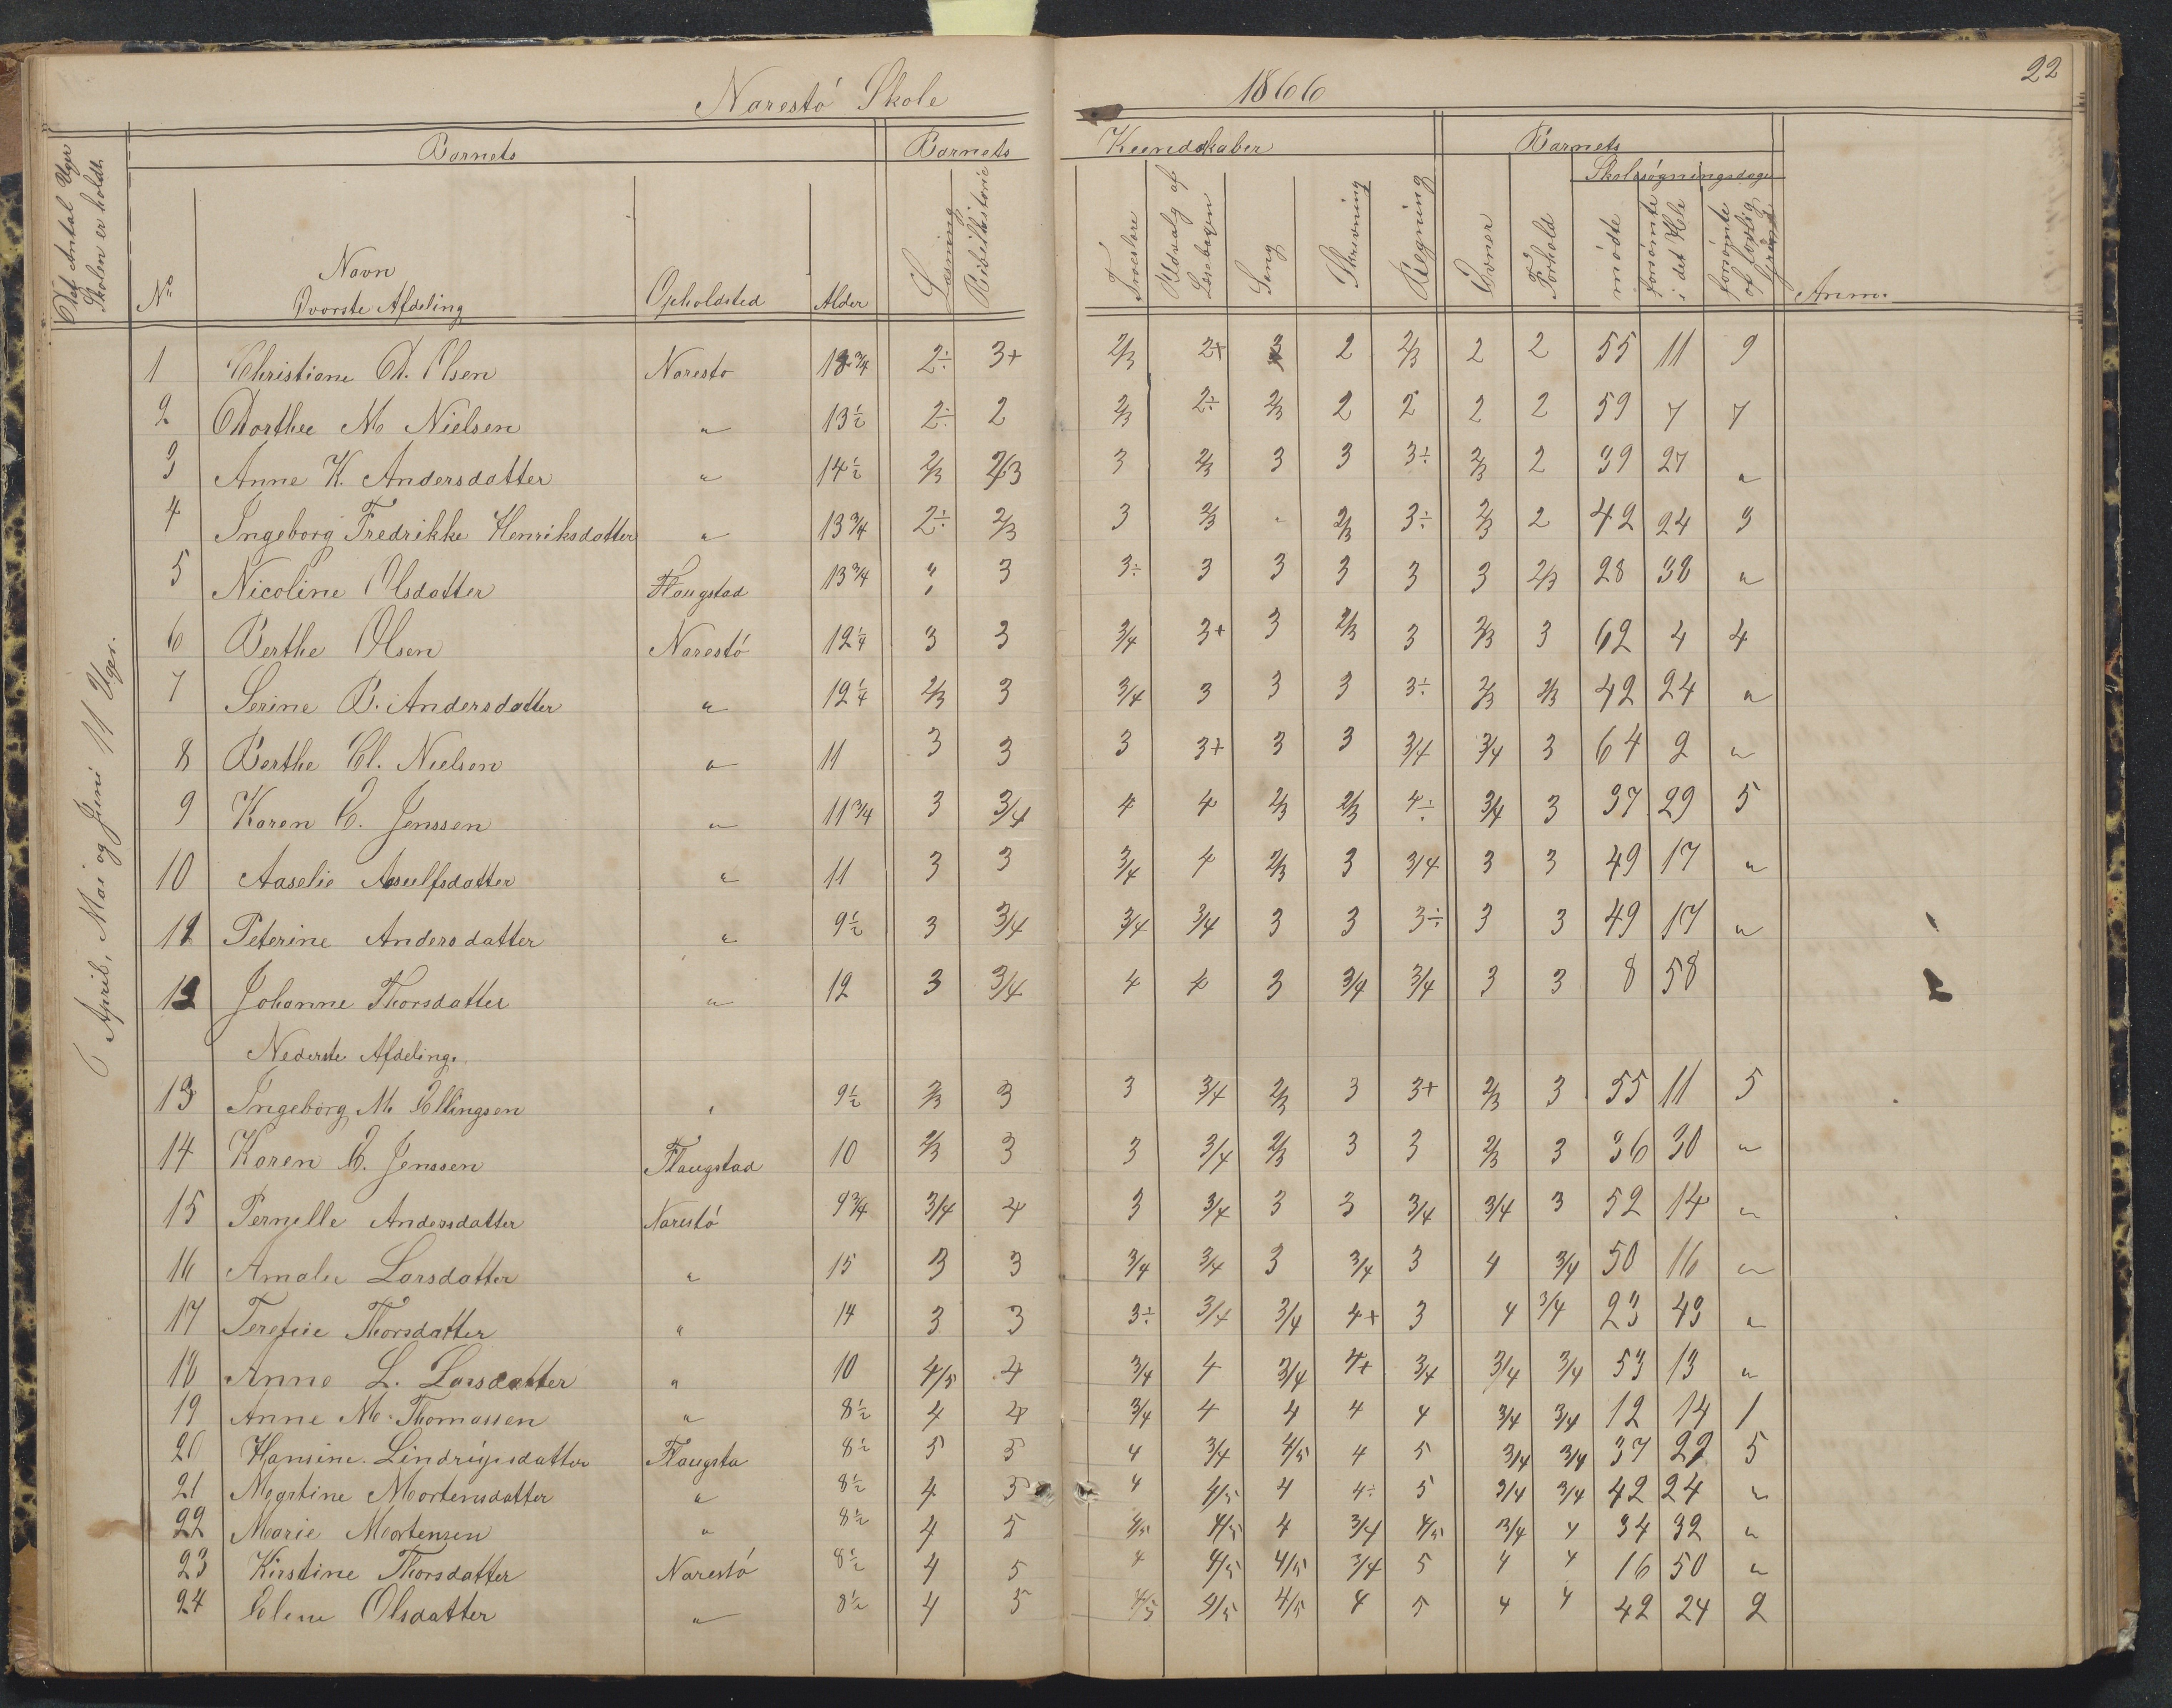 Narestö Skole 1866 22
Barnets Barnets Kundskaber Barnets
Skolesøgningsdage
Det Antal Uger Skolen er holdt.
No Navn Opholdsted Alder Læsning Bibelhistorie Troeslære Udvalg af Læsebogen Sang Skrivning Regning Evner Forhold mödte forsömte i det Hele forsömte af lovlig Grund Anm.
Øvorste Afdeling
6 April, Mai og Juni 11 Uger.
1 Christiane A. Olsen Naresto 13 3/4 2÷ 3+ 2/3 2+ 3 2 2/3 2 2 55 11 9
2 Dorthee M. Nielsen " 13 1/2 2÷ 2 2/3 2÷ 2/3 2 2 2 2 59 7 7
3 Anne K. Andersdatter " 14 1/2 2/3 2/3 3 2/3 3 3 3÷ 2/3 2 39 27 "
4 Ingeborg Fredrikke Henriksdatter " 13 3/4 2÷ 2/3 3 2/3 " 2/3 3÷ 2/3 2 42 24 3
5 Nicoline Olsdatter Flaugstad 13 3/4 " 3 3÷ 3 3 3 3 3 2/3 28 38 "
6 Berthe Olsen Narestö 12 1/4 3 3 3/4 3+ 3 2/3 3 2/3 3 62 4 4
7 Serine B. Andersdatter " 12 1/4 2/3 3 3/4 3 3 3 3÷ 2/3 2/3 42 24 "
8 Berthe Cl. Nielsen " 11 3 3 3 3+ 3 3 3/4 3/4 3 64 2 "
9 Karen C. Jenssen " 11 3/4 3 3/4 4 4 2/3 2/3 4÷ 3/4 3 37 29 5
10 Aaselie Asulfsdatter " 11 3 3 3/4 4 2/3 3 3/4 3 3 49 17 "
11 Peterine Andersdatter " 9 1/2 3 3/4 3/4 3/4 3 3 3÷ 3 3 49 17 "
12 Johanne Thorsdatter " 12 3 3/4 4 4 3 3/4 3/4 3 3 8 58
Nederste Afdeling.
13 Ingeborg M. Ellingsen " 9 1/2 2/3 3 3 3/4 2/3 3 3+ 2/3 3 55 11 5
14 Karen E. Jenssen Flaugstad 10 2/3 3 3 3/4 2/3 3 3 2/3 3 36 30 "
15 Pernelle Andersdatter Narestö 9 3/4 3/4 4 3 3/4 3 3 3/4 3/4 3 52 14 "
16 Amalie Larsdatter " 15 3 3 3/4 3/4 3 3/4 3 4 3/4 50 16 "
17 Terefeie Thorsdatter " 14 3 3 3÷ 3/4 3/4 4+ 3 4 3/4 23 43 "
18 Anne L. Larsdatter " 10 4/5 4 3/4 4 3/4 4+ 3/4 3/4 3/4 53 13 "
19 Anne M. Thomassen " 8 1/2 4 4 3/4 4 4 4 4 3/4 3/4 12 14 1
20 Hansine Lindrigsdatter Flaugsta 8 1/2 5 5 4 3/4 4/5 4 5 3/4 3/4 37 29 5
21 Magtine Mortensdatter " 8 1/2 4 5 4 4/5 4 4÷ 5 3/4 3/4 42 24 "
22 Marie Mortensen " 8 1/2 4 5 4/5 4/5 4 3/4 4/5 3/4 4 34 32 "
23 Kirstine Thorsdatter Narestö 8 1/2 4 5 4 4/5 4/5 3/4 5 4 4 16 50 "
24 Elene Olsdatter " 8 1/2 4 5 4/5 4/5 4/5 4 5 4 4 42 24 2